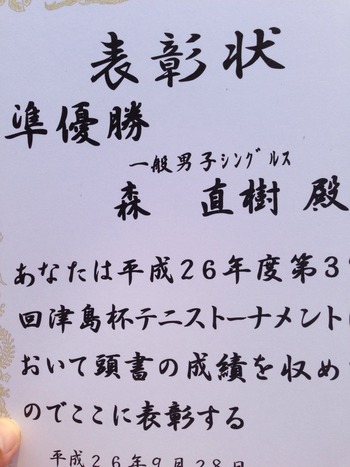 表彰状
準優勝
一般男子シングルス
森 直樹 殿
あなたは平成26年度第3
回津島杯テニストーナメント
おいて頭書の成績を収め
のでここに表彰する
平成26年9月28日